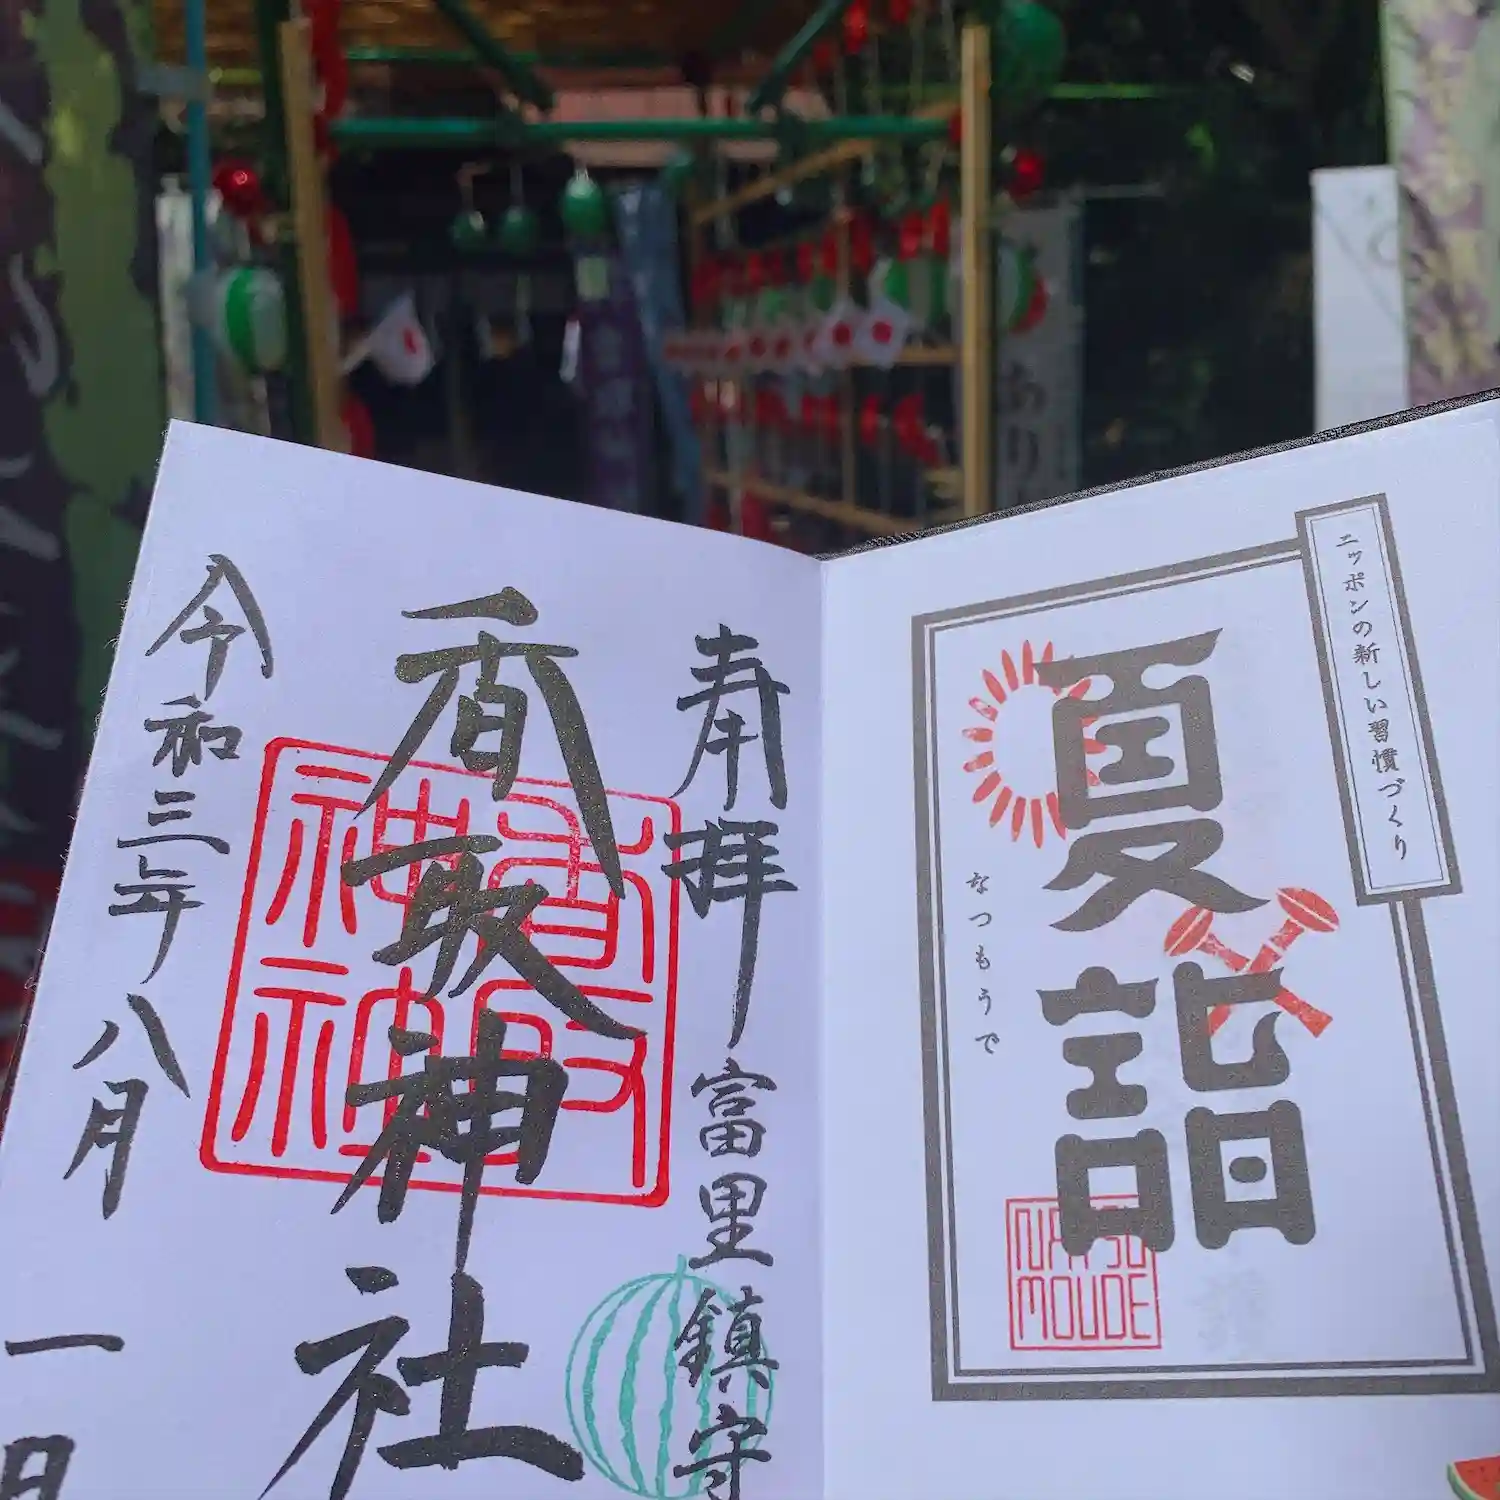 ニッポンの新しい習慣づくり
夏詣
なつもうで
NATSU
MOUDE
奉拝 富里鎮守
香取神社
香取
神社
令和三年八月一日
あり